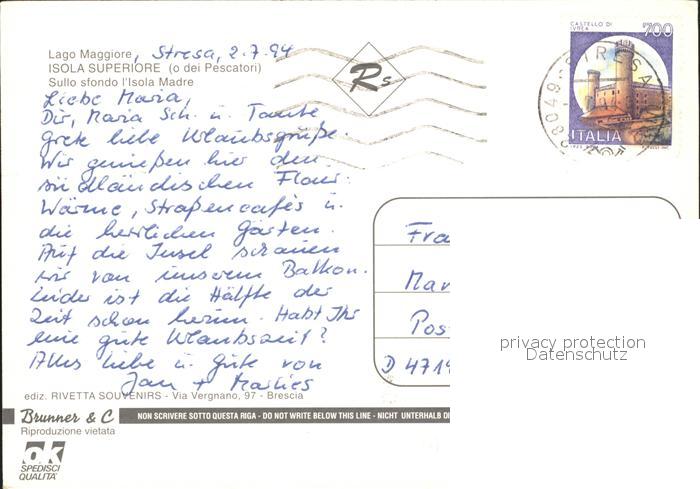 Lago Maggiore, Stresa, 2.7.94
ISOLA SUPERIORE (o dei Pescatori)
Sullo sfondo l'Isola Madre
Liebe Maria,
Dir, Maria Sch. u. Tante
Grete liebe Urlaubsgrüße.
Wir genießen hier den
südländischen Flair:
Wärme, Straßencafés u.
die herrlichen Gärten.
Auf die Insel schauen
wir von unserem Balkon.
Leider ist die Hälfte der
Zeit schon herum. Habt Ihr
eine gute Urlaubszeit?
Alles Liebe u. Gute von
Jan + Marlies
ediz. RIVETTA SOUVENIRS - Via Vergnano, 97 - Brescia
Brunner & C
NON SCRIVERE SOTTO QUESTA RIGA - DO NOT WRITE BELOW THIS LINE - NICHT UNTERHALB DI
Riproduzione vietata
ok
SPEDISCI
QUALITA'
Rs
CASTELLO DI
IVREA
700
ITALIA
STRESA
28049
Fra
Mar
Pos
D 4714
privacy protection
Datenschutz